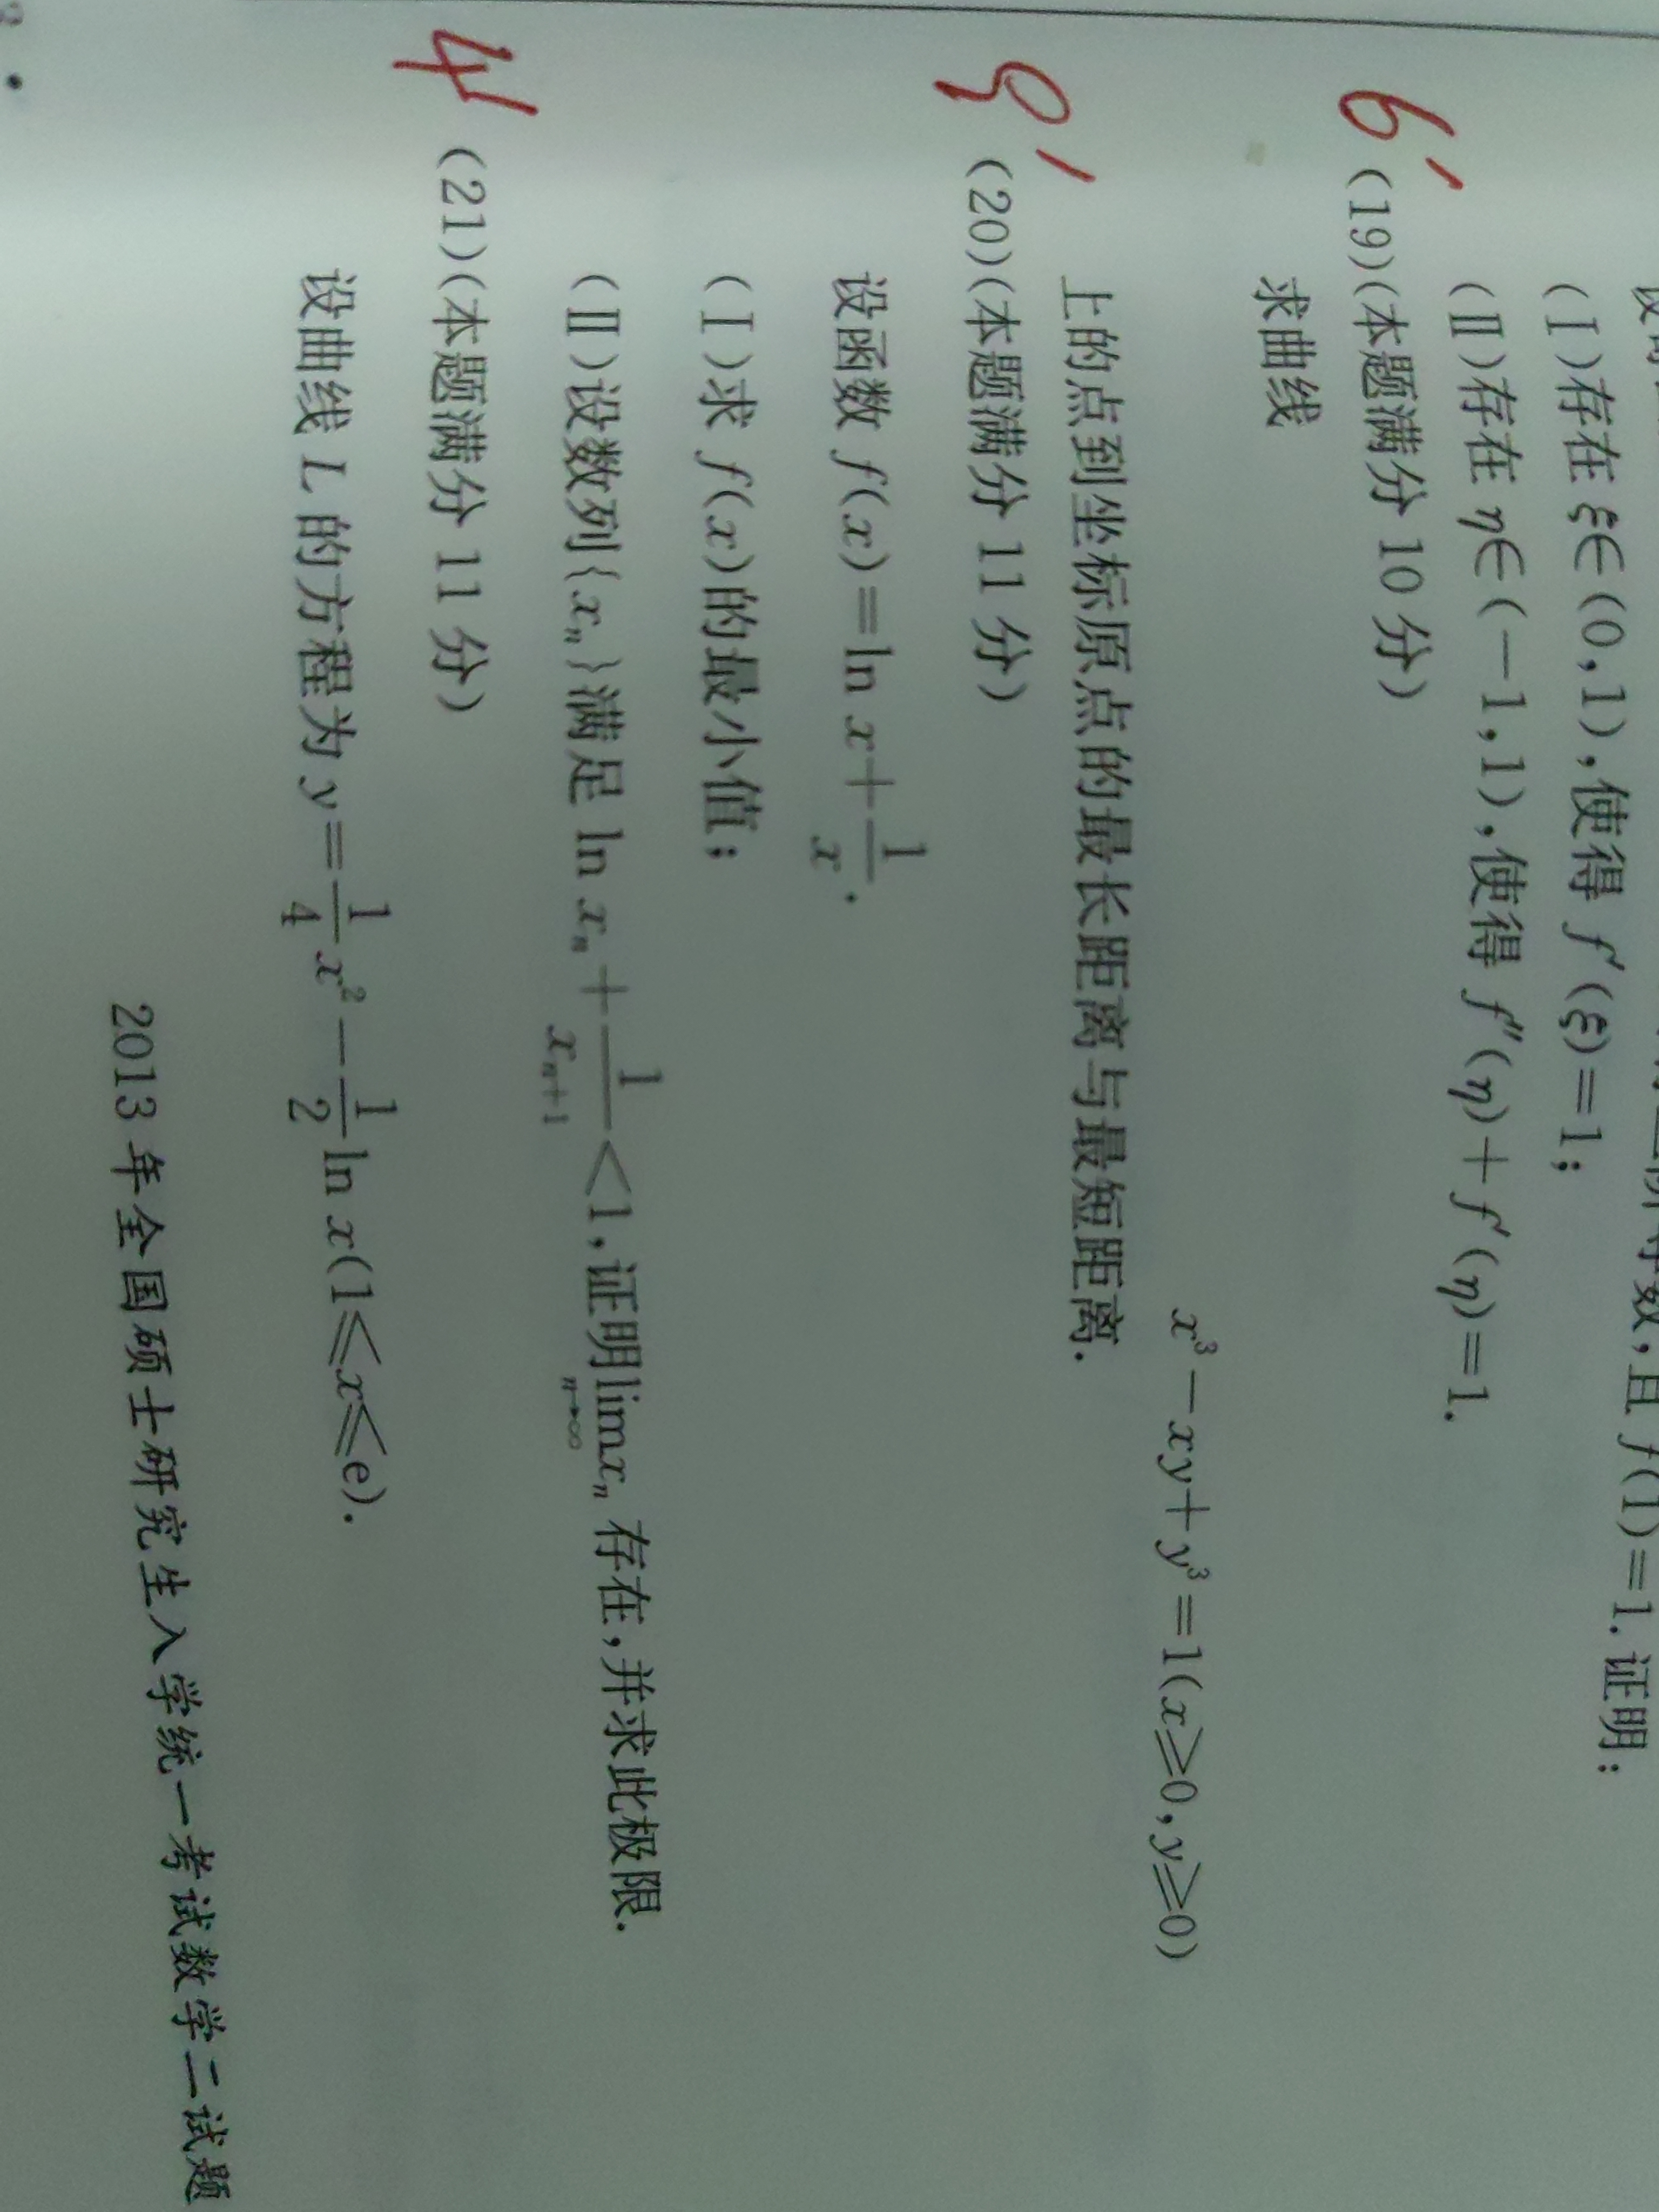 数,且 f(1)=1.证明:
(Ⅰ)存在 ξ∈(0,1),使得 f′(ξ)=1;
(Ⅱ)存在 η∈(-1,1),使得 f″(η)+f′(η)=1.
6′ (19)(本题满分 10 分)
求曲线
x³-xy+y³=1(x≥0,y≥0)
上的点到坐标原点的最长距离与最短距离.
(20)(本题满分 11 分)
设函数 f(x)=ln x+1/x.
(Ⅰ)求 f(x)的最小值;
(Ⅱ)设数列{xₙ}满足 ln xₙ+1/xₙ₊₁<1,证明lim n→∞ xₙ 存在,并求此极限.
4 (21)(本题满分 11 分)
设曲线 L 的方程为 y=1/4x²-1/2ln x(1≤x≤e).
2013 年全国硕士研究生入学统一考试数学二试题